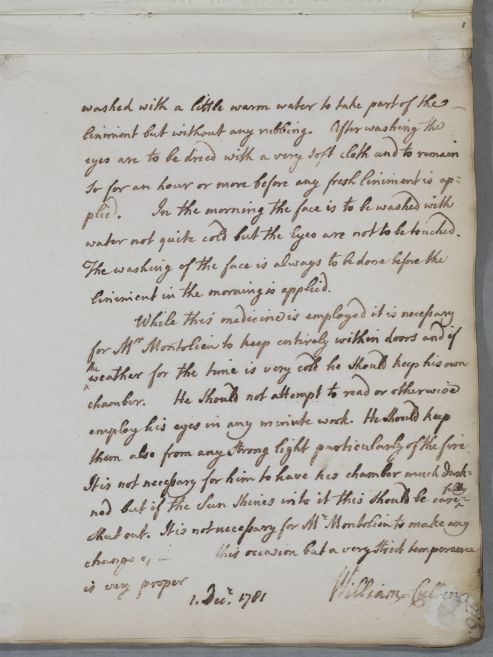 washed with a little warm water to take part of the
liniment but without any rubbing. After washing the
eyes are to be dried with a very soft cloth and to remain
so for an hour or more before any fresh liniment is ap=
plied. In the morning the face is to be washed with
water not quite cold but the Eyes are not to be touched.
The washing of the face is always to be done before the
liniment in the morning is applied.
While this medicine is employed it is necessary
for Mr Montolieu to keep entirely within doors and if
the
weather for the time is very cold he should keep his own
chamber. He should not attempt to read or otherwise
employ his eyes in any minute work. He should keep
them also from any strong light particularly of the fire.
It is not necessary for him to have his chamber much dark=
ned but if the Sun Shines into it this should be care=
fully
shut out. It is not necessary for Mr Montolieu to make any
change this occasion but a very strict temperance
is very proper
1. Decr. 1781 William Cullen